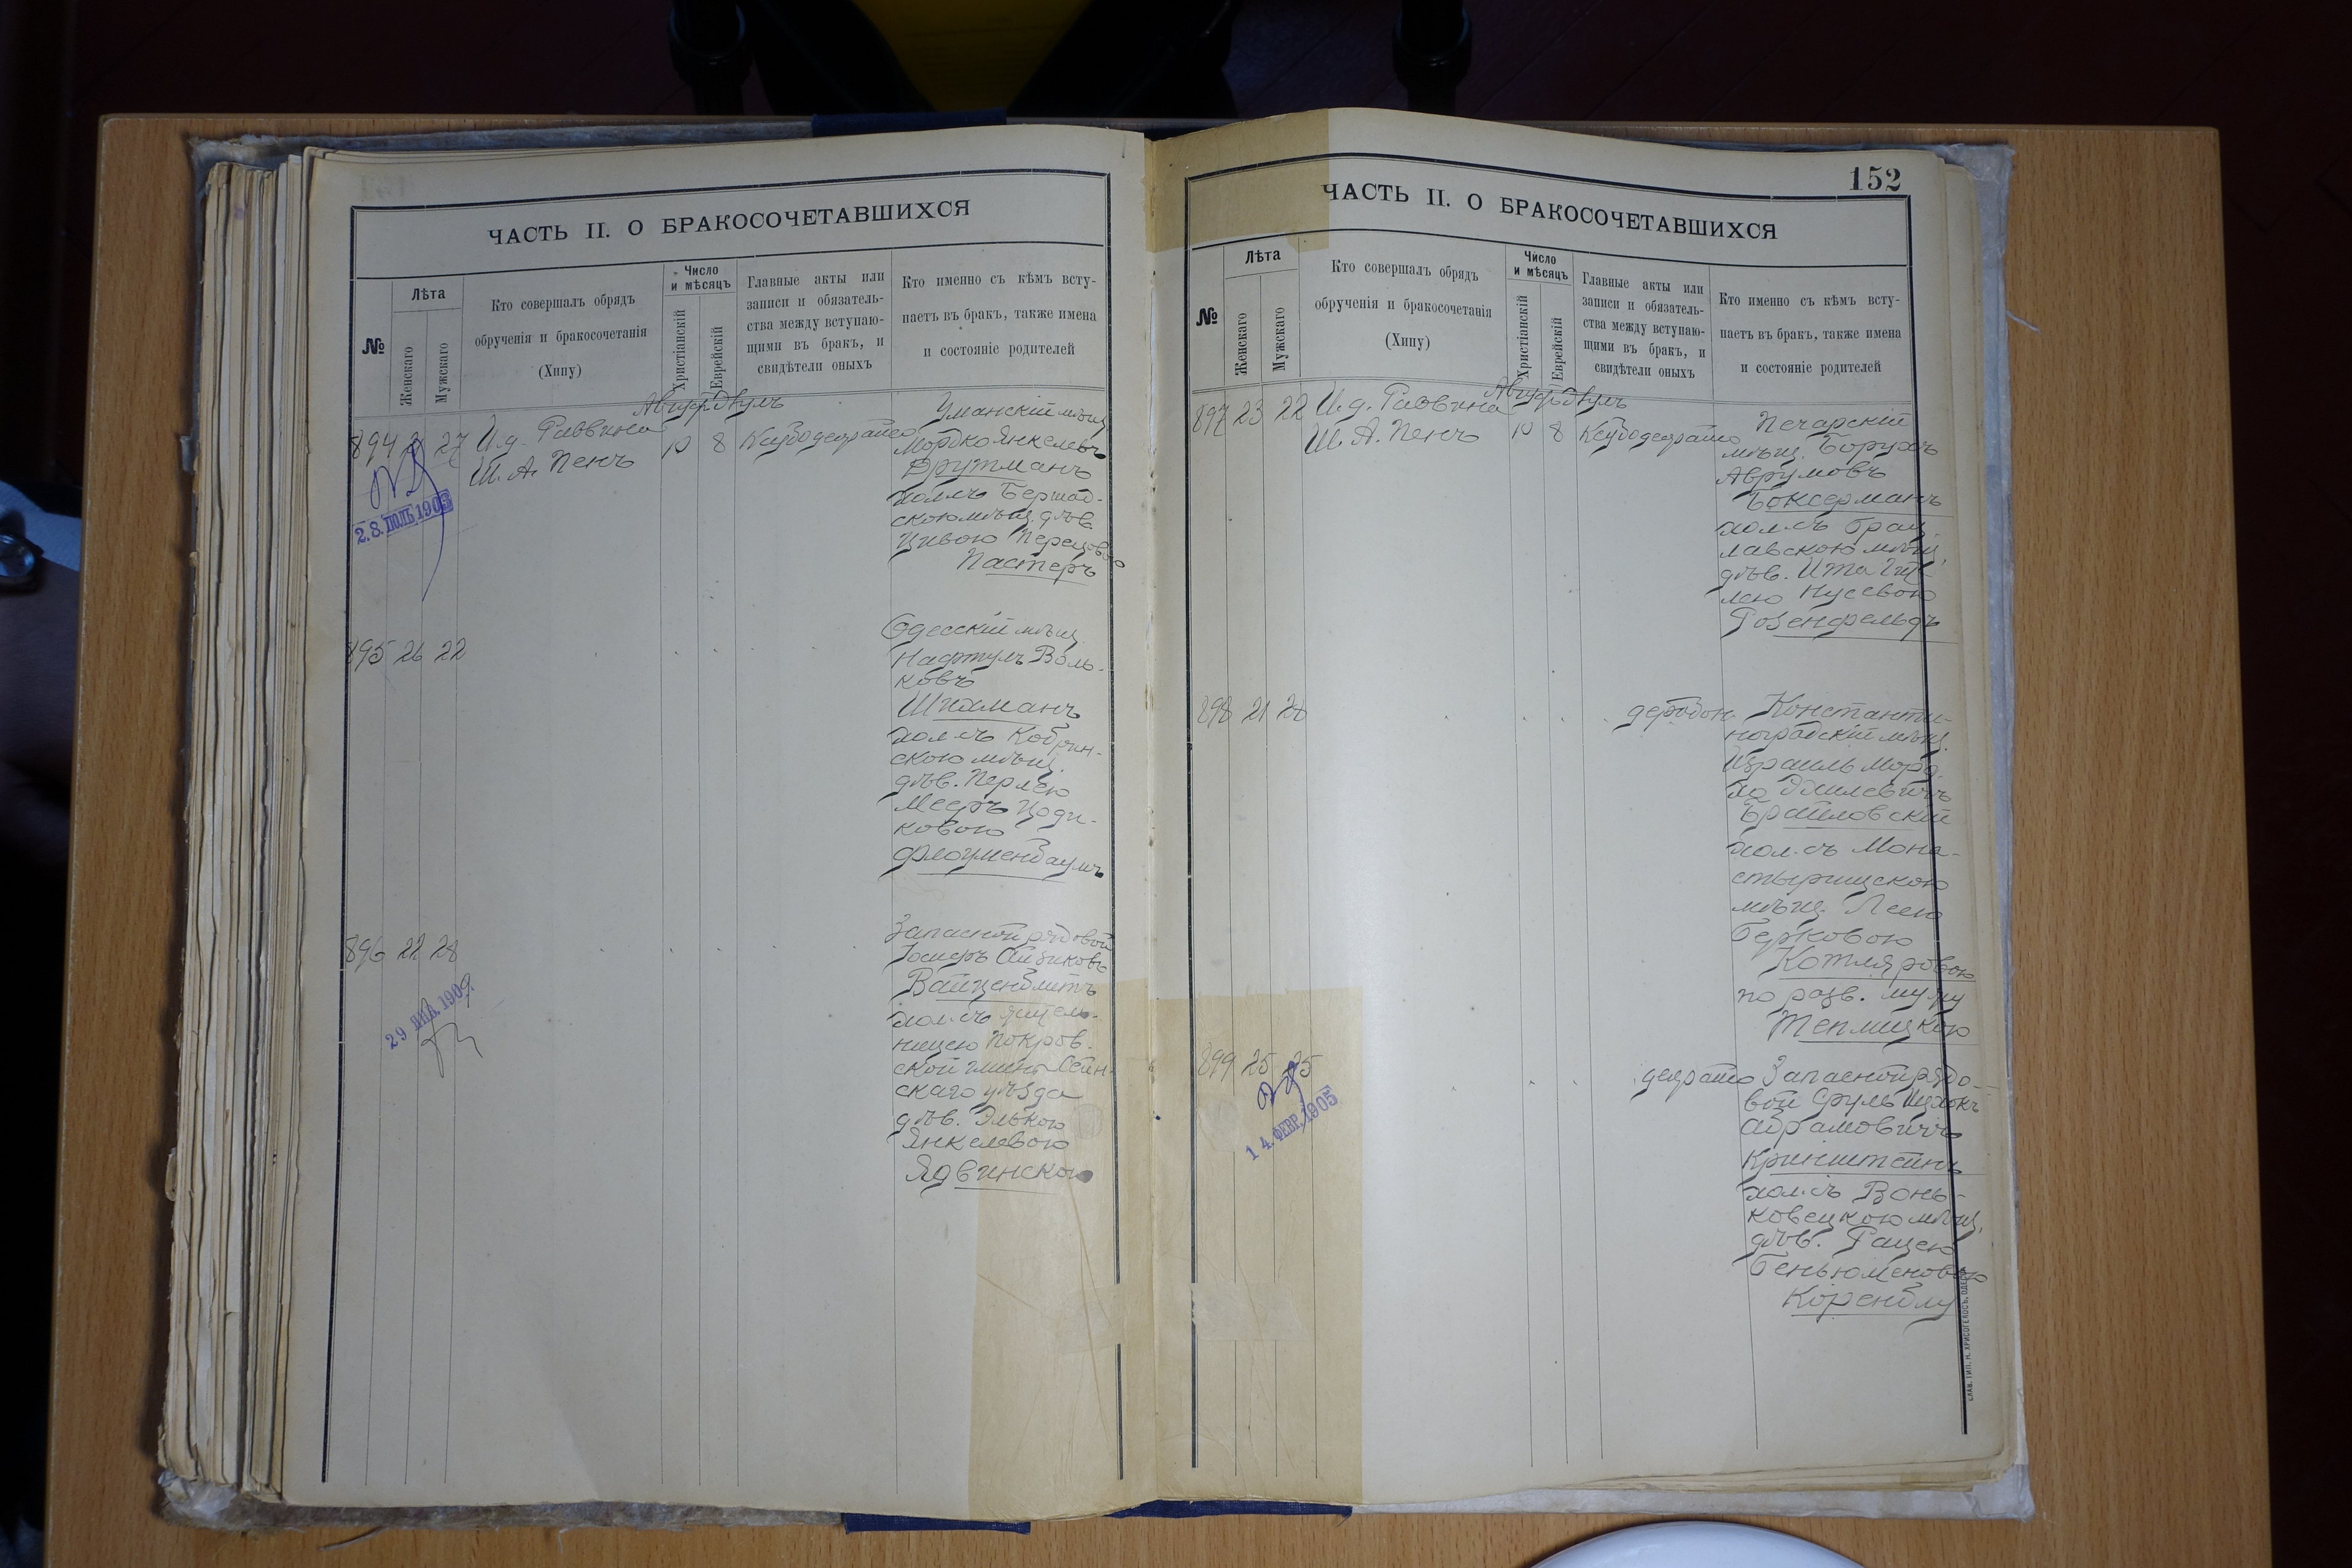 ЧАСТЬ II. О БРАКОСОЧЕТАВШИХСЯ
№
Лѣта
Женскаго
Мужскаго
Кто совершалъ обрядъ
обрученія и бракосочетанія
(Хипу)
Число
и мѣсяцъ
Христіанскій
Еврейскій
Главные акты или
записи и обязатель-
ства между вступаю-
щими въ бракъ, и
свидѣтели оныхъ
Кто именно съ кѣмъ всту-
паетъ въ бракъ, также имена
и состояніе родителей
894 21 27
И.д. Раввина
Ш. А. Пенъ
10 8
Уманскій мѣщ.
Мордко Янкелевъ
Фрутманъ
хол. съ Бершад-
скою мѣщ. дѣв.
Цивою Перецовою
Пастеръ
895 26 22
Одесскій мѣщ.
Нафтулъ Воль-
ковъ
Шпаманъ
хол. съ Кобрин-
скою мѣщ.
дѣв. Перлею
Мееръ Цоди-
ковою
Флоуменбаумъ
896 22 28
29 1909
Запасной рядовой
Іосифъ Айзиковъ
Вайценблитъ
хол. съ жител-
ницею Покров.
ской гмины Сейн-
скаго уѣзда
дѣв. Элькою
Янкелевою
Ядвинскою
152
ЧАСТЬ II. О БРАКОСОЧЕТАВШИХСЯ
№
Лѣта
Женскаго
Мужскаго
Кто совершалъ обрядъ
обрученія и бракосочетанія
(Хипу)
Число
и мѣсяцъ
Христіанскій
Еврейскій
Главные акты или
записи и обязатель-
ства между вступаю-
щими въ бракъ, и
свидѣтели оныхъ
Кто именно съ кѣмъ всту-
паетъ въ бракъ, также имена
и состояніе родителей
897 23 22
И.д. Раввина
Ш. А. Пенъ
10 8
Печарскій
мѣщ. Борухъ
Аврумовъ
Боксерманъ
хол. съ Брац-
лавскою мѣщ.
дѣв. Ита Гит-
лею Нусевою
Розенфельдъ
898 21 28
Константи-
ноградскій мѣщ.
Израиль Морд-
ко Эмилевичъ
Браиловскій
хол. съ Мона-
стырищскою
мѣщ. Леею
Берковою
Котляровою
по разв. мужу
Теплицкою
899 25 25
14. ФЕВР. 1905
Запасной рядо-
вой Сруль Ицхокъ
Абрамовичъ
Кринштейнъ
хол. съ Вонь-
ковецкою мѣщ.
дѣв. Рацею
Беньюменовою
Коренблу
СЛАВ. ТИП. Н. ХРИСОГЕЛОСЪ, ОДЕССА